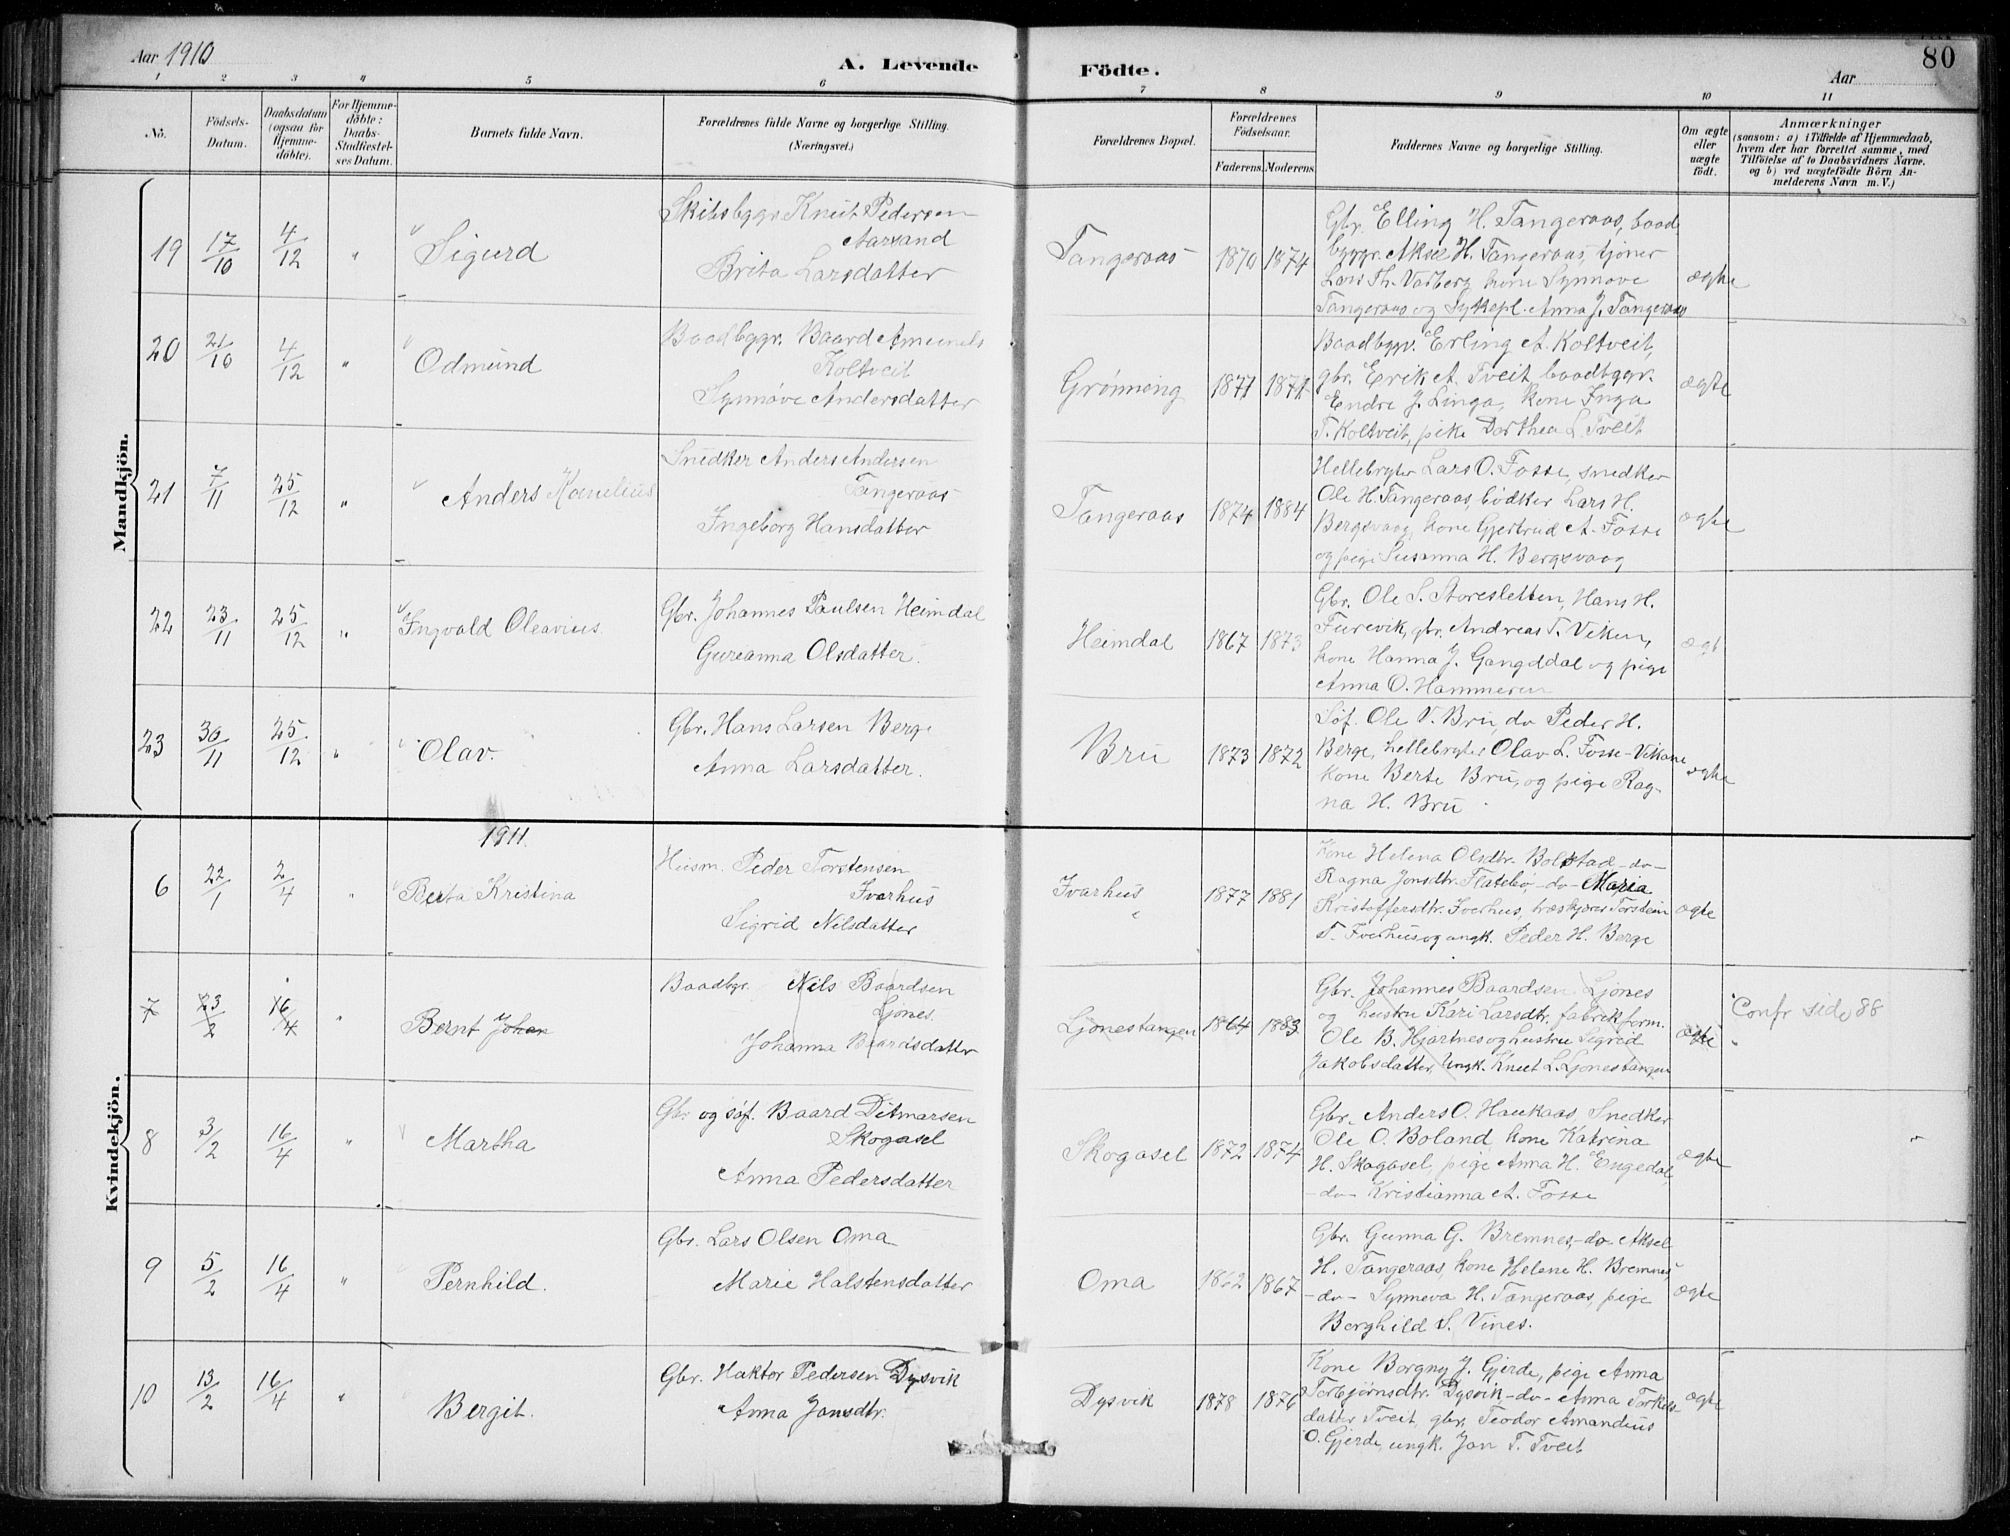 Aar 1910
A. Levende
Födte.
Aar
80
1 2 3 4 5 6 7 8 9 10 11
No.
Födsels-
Datum.
Daabsdatum
(ogsaa for
Hjemme-
døbte).
For Hjemme-
døbte:
Daabs-
Stadfæstel-
ses Datum.
Barnets fulde Navn.
Forældrenes fulde Navne og borgerlige Stilling.
(Næringsvei.)
Forældrenes Bopæl.
Forældrenes
Födselsaar.
Faderens. Moderens.
Faddernes Navne og borgerlige Stilling.
Om ægte
eller
uægte
födt.
Anmærkninger
(saasom: a) i Tilfælde af Hjemmedaab,
hvem der har forrettet samme, med
Tilføielse af to Daabsvidners Navne.
og b) ved uægtefödte Börn An-
melderens Navn m. V.)
Mandkjön.
19 17/10 4/12 " Sigurd
Skibsbyggr Knut Pedersen
Aarsand
Brita Larsdatter
Tangeraas 1870 1874
Gbr. Elling H. Tangeraas, baad
byggr. Aksel H. Tangeraas, tjener
Lars Th. Vadberg, kone Synnove
Tangeraas og Sykepl. Anna J. Tangeraas
ægte
20 21/10 4/12 " Odmund
Baadbyggr. Baard Amunds
Koltveit
Synnøve Andersdatter
Grønning 1871 1871
Baadbyggr. Erling A. Koltveit,
gbr. Erik A. Tveit baadbyggr.
Endre J. Linga, kone Inga
T. Koltveit, pike Dorthea L. Tveit
ægte
21 7/11 25/12 " Anders Kornelius
Snedker Anders Andersen
Tangeraas
Ingeborg Hansdatter
Tangeraas 1874 1884
Hellebryter Lars O. Fosse, snedker
Ole H. Tangeraas, bødker Lars H.
Bergsvaag, kone Gjertrud A. Fosse
og pige Susanna H. Bergsvaag
ægte
22 23/11 25/12 " Ingvald Oleavius.
Gbr. Johannes Paulsen Heimdal
Gureanna Olsdatter.
Heimdal 1867 1873
Gbr. Ole S. Storesletten, Hans H.
Furevik, gbr. Andreas T. Viken,
kone Hanna J. Gangddal og pige
Anna O. Hammeren
ægt
23 30/11 25/12 " Olav.
Gbr. Hans Larsen Berge
Anna Larsdatter.
Bru 1873 1872
Søf. Ole V. Bru, do Peder H.
Berge, hellebryter Olav L. Fosse-Vikane
kone Berte Bru, og pige Rag-
na H. Bru
ægte
Kvindekjön.
1911.
6 22/1 2/4 " Berta Kristina
Husm. Peder Torstensen
Ivarhus
Sigrid Nilsdatter
Ivarhus 1877 1881
Kone Helena Olsdtr. Bolstad -do-
Ragna Jonsdtr. Flatebø -do- Maria
Kristoffersdtr. Iverhus, træskjærer Torstein
T. Iverhus og ungk. Peder H. Berge
ægte
7 23/2 16/4 " Bernt Johan
Baadbgr. Nils Baardsen
Ljones.
Johanna Baardsdatter
Ljonestangen 1864 1883
Gbr. Johannes Baardsen Ljones
og hustru Kari Larsdtr. fabrikform.
Ole B. Hjartnes og hustru Sigrid
Jakobsdatter, Ungk. Knut L. Ljonestangen
ægte
Confr side 88
8 3/2 16/4 " Martha
Gbr. og søf. Baard Ditmarsen
Skogasel
Anna Pedersdatter
Skogasel 1872 1874
Gbr. Anders O. Haukaas Snedker
Ole O. Boland kone Katrina
H. Skogasel, pige Anna H. Engedal,
-do- Kristianna A. Fosse
ægte
9 5/2 16/4 " Pernhild.
Gbr. Lars Olsen Oma
Marie Halstensdatter
Oma 1862 1867
Gbr. Gunna G. Bremnes, -do- Aksel
H. Tangeraas, kone Helene H. Bremnes
-do- Synneva H. Tangeraas, pige
Berghild S. Vines.
ægte
10 13/2 16/4 " Bergit.
Gbr. Haktor Pedersen Dysvik
Anna Jonsdtr.
Dysvik 1878 1876
Kone Borgny J. Gjerde, pige Anna
Torbjørnsdtr. Dysvik, -do- Anna Torkels-
datter Tveit, gbr. Teodor Amandius
O. Gjerde, ungk. Jon T. Tveit
ægte